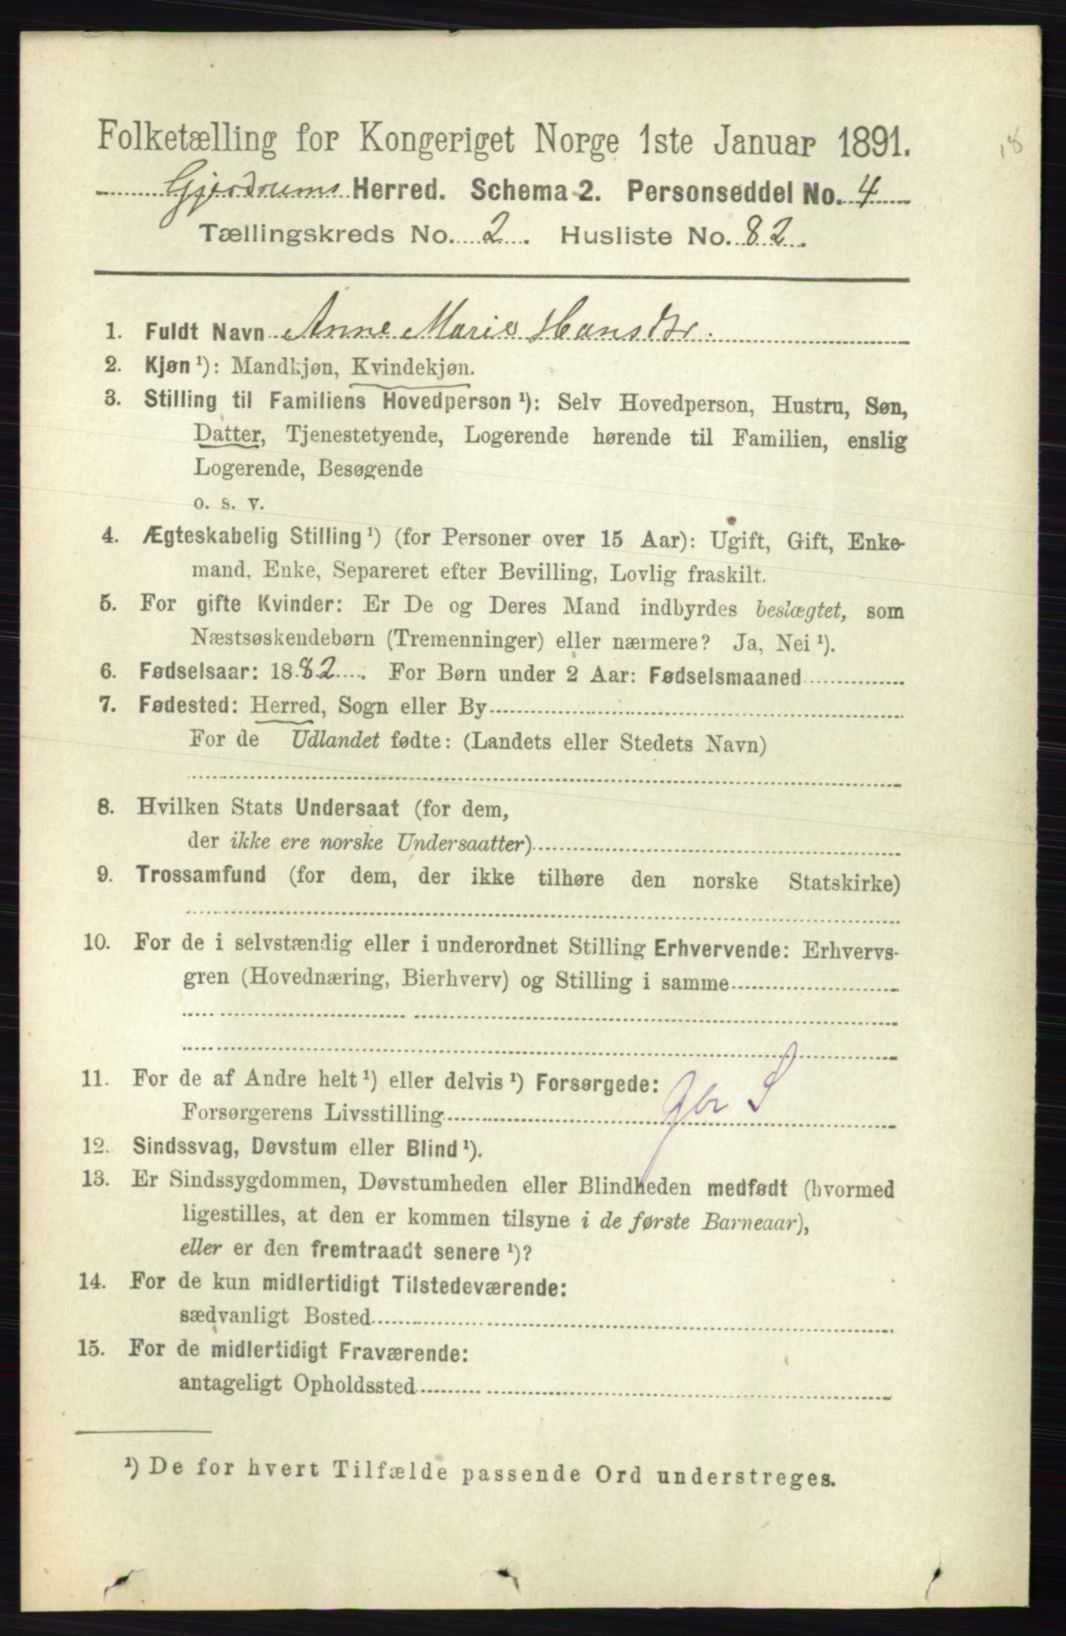 Folketælling for Kongeriget Norge 1ste Januar 1891.
18
Gjerdrums Herred. Schema 2. Personseddel No. 4
Tællingskreds No. 2. Husliste No. 82.
1. Fuldt Navn Anne Marie Hansdtr.
2. Kjøn ¹): Mandkjøn, Kvindekjøn.
3. Stilling til Familiens Hovedperson ¹): Selv Hovedperson, Hustru, Søn,
Datter, Tjenestetyende, Logerende hørende til Familien, enslig
Logerende, Besøgende
o. s. v.
4. Ægteskabelig Stilling ¹) (for Personer over 15 Aar): Ugift, Gift, Enke-
mand, Enke, Separeret efter Bevilling, Lovlig fraskilt.
5. For gifte Kvinder: Er De og Deres Mand indbyrdes beslægtet, som
Næstsøskendebørn (Tremenninger) eller nærmere? Ja, Nei ¹).
6. Fødselsaar: 1882. For Børn under 2 Aar: Fødselsmaaned
7. Fødested: Herred, Sogn eller By
For de Udlandet fødte: (Landets eller Stedets Navn)
8. Hvilken Stats Undersaat (for dem,
der ikke ere norske Undersaatter)
9. Trossamfund (for dem, der ikke tilhøre den norske Statskirke)
10. For de i selvstændig eller i underordnet Stilling Erhvervende: Erhvervs-
gren (Hovednæring, Bierhverv) og Stilling i samme
11. For de af Andre helt ¹) eller delvis ¹) Forsørgede:
Forsørgerens Livsstilling
12. Sindssvag, Døvstum eller Blind ¹).
13. Er Sindssygdommen, Døvstumheden eller Blindheden medfødt (hvormed
ligestilles, at den er kommen tilsyne i de første Barneaar),
eller er den fremtraadt senere ¹)?
14. For de kun midlertidigt Tilstedeværende:
sædvanligt Bosted
15. For de midlertidigt Fraværende:
antageligt Opholdssted
¹) De for hvert Tilfælde passende Ord understreges.